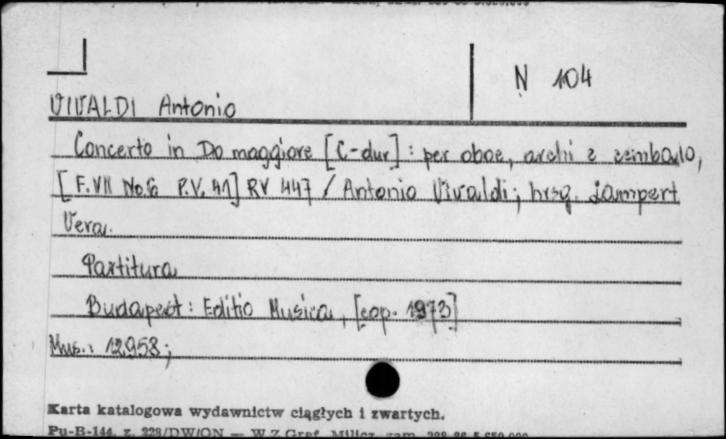 N 104
VIVALDI Antonio
Concerto in Do maggiore [C-dur] : per oboe, archi e cembalo,
[F.VII No.6 P.V. 41] RV 447 / Antonio Vivaldi ; hrsg. Lampert
Vera.
Partitura
Budapest : Editio Musica, [cop. 1973]
Mus.: 12958;
Karta katalogowa wydawnictw ciągłych i zwartych.
Pu-B-144, z. 228/DW/ON — W.Z.Graf. Milicz